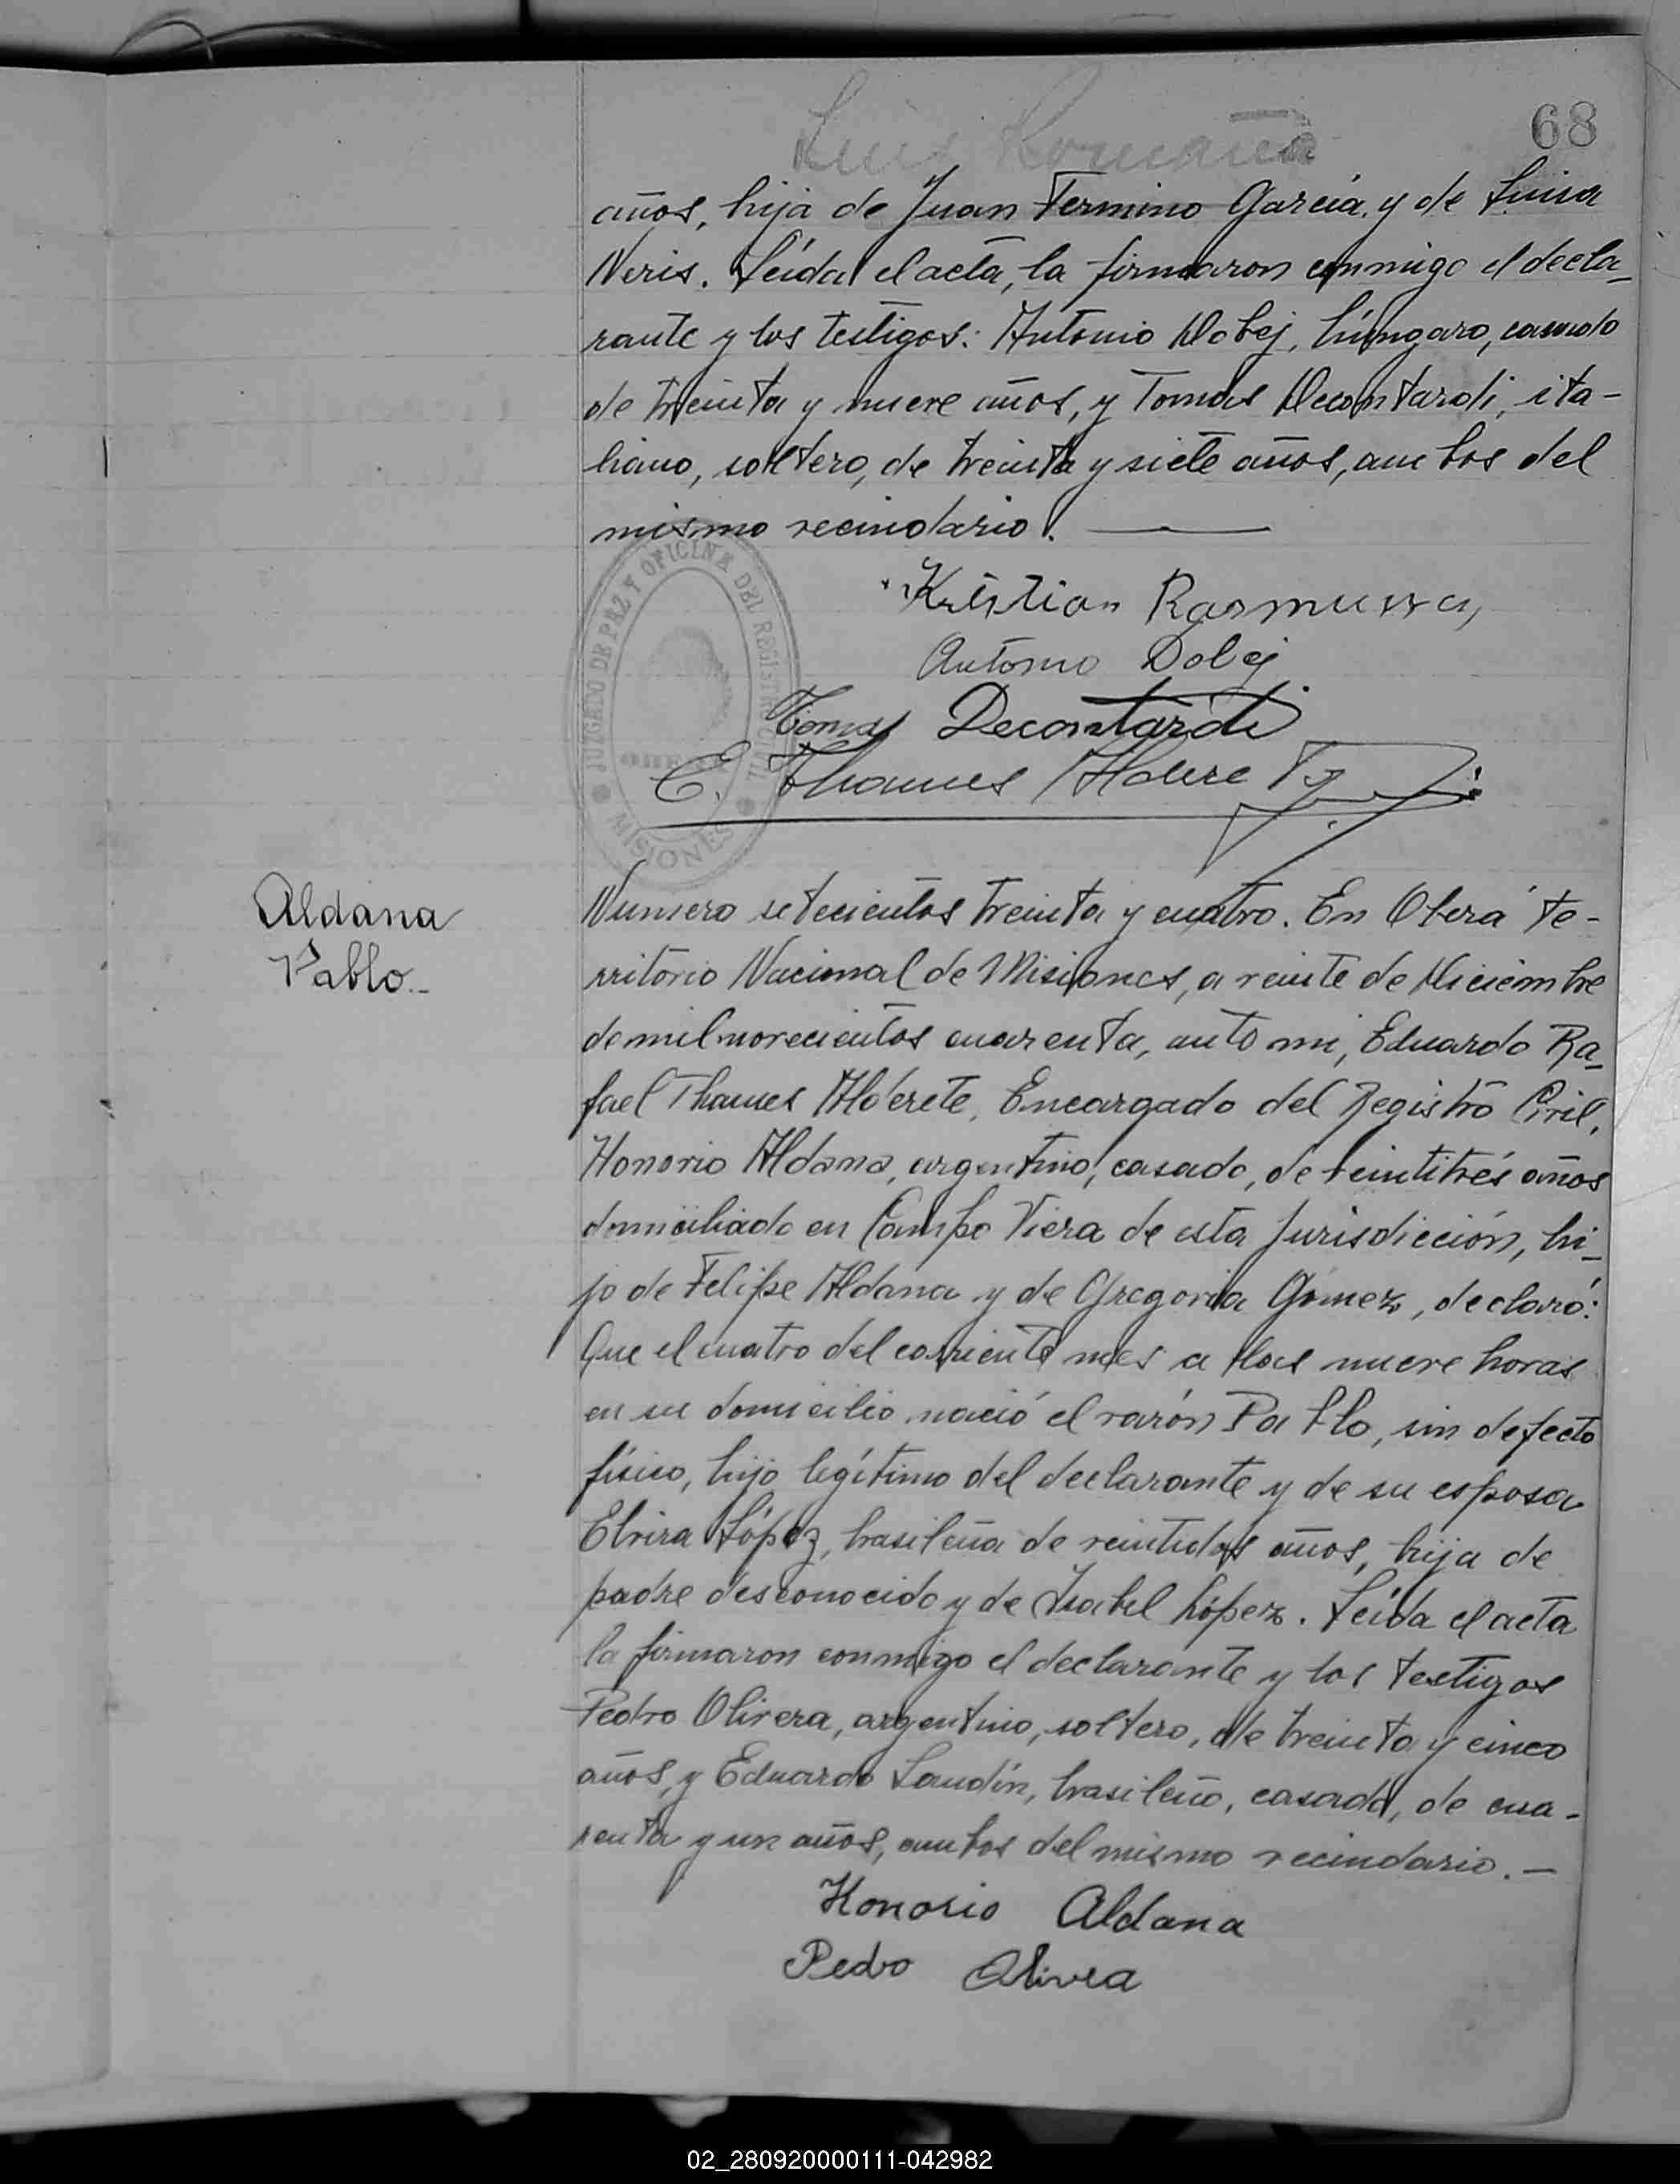 68
Luis Romaña
años, hija de Juan Fermino García y de Luisa
Neris. Leída el acta, la firmaron conmigo el decla-
rante y los testigos: Antonio Dobej, húngaro, casado
de treinta y nueve años, y Tomás Decontardi, ita-
liano, soltero, de treinta y siete años, ambos del
mismo vecindario.
Kristian Rasmussen
Antonio Dobej
Tomas Decontardi
E. Thames Alderete
JUZGADO DE PAZ Y OFICINA DEL REGISTRO CIVIL
OBERA
MISIONES
Aldana
Pablo.-
Numero setecientos treinta y cuatro. En Oberá te-
rritorio Nacional de Misiones, a veinte de Diciembre
de mil novecientos cuarenta, ante mi, Eduardo Ra-
fael Thames Alderete, Encargado del Registro Civil,
Honorio Aldana, argentino, casado, de veintitrés años
domiciliado en Campo Viera de esta Jurisdicción, hi-
jo de Felipe Aldana y de Gregoria Gómez, declaró:
Que el cuatro del corriente mes a las nueve horas
en su domicilio nació el varón Pablo, sin defecto
físico, hijo legítimo del declarante y de su esposa
Elvira López, brasileña de veintidos años, hija de
padre desconocido y de Isabel López. Leída el acta
la firmaron conmigo el declarante y los testigos
Pedro Olivera, argentino, soltero, de treinta y cinco
años, y Eduardo Landín, brasileño, casado, de cua-
renta y un años, ambos del mismo vecindario.-
Honorio Aldana
Pedro Olivera
02_280920000111-042982